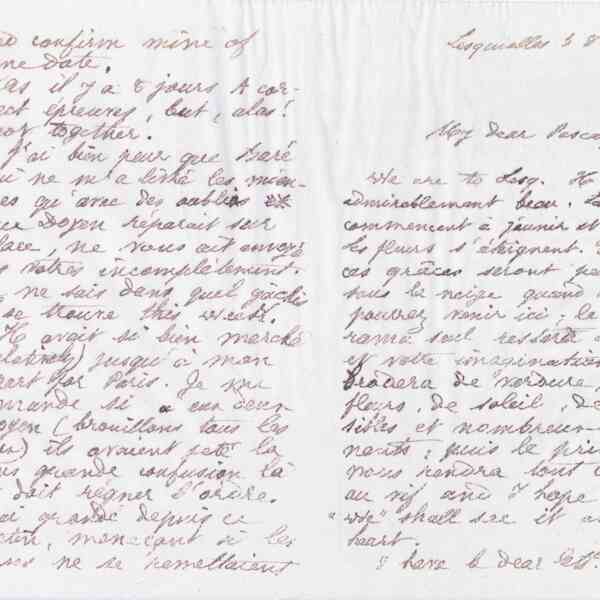 confirm mine of
date.
il y a 8 jours A cor-
ect épreuves, but, alas!
together.
J'ai bien peur que
ne m'a livré les mien-
es qu'avec des oublis
ue Doyen réparait sur
lace, ne vous ait envoyé
s vôtres incomplètement.
ne sais dans quel gâchis
se trouve this week.
avait si bien marché
jusqu'à mon
part for Paris. Je me
mande si a eux deux
oyen (brouillons tous les
ux) ils avaient jeté la
us grande confusion là
doit régner l'ordre.
ai grondé depuis ce
menaçant si les
ne se remettaient
Lesquielles
My dear
We are to Lesq.
admirablement beau.
commencent à jaunir et
les fleurs s'éteignent.
ces grâces seront
sous la neige quand
pourrez venir ici; le
rama seul restera
et votre imagination
brodera de verdure,
fleurs, de soleil, de
et nombreux
nents; puis le prin
vous rendra tout
au vif and I hope
"we" shall see it
heart.
I have to dear